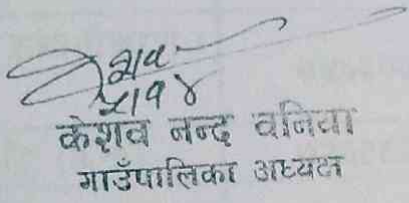 ५।१४
केशव नन्द वनिया
गाउँपालिका अध्यक्ष